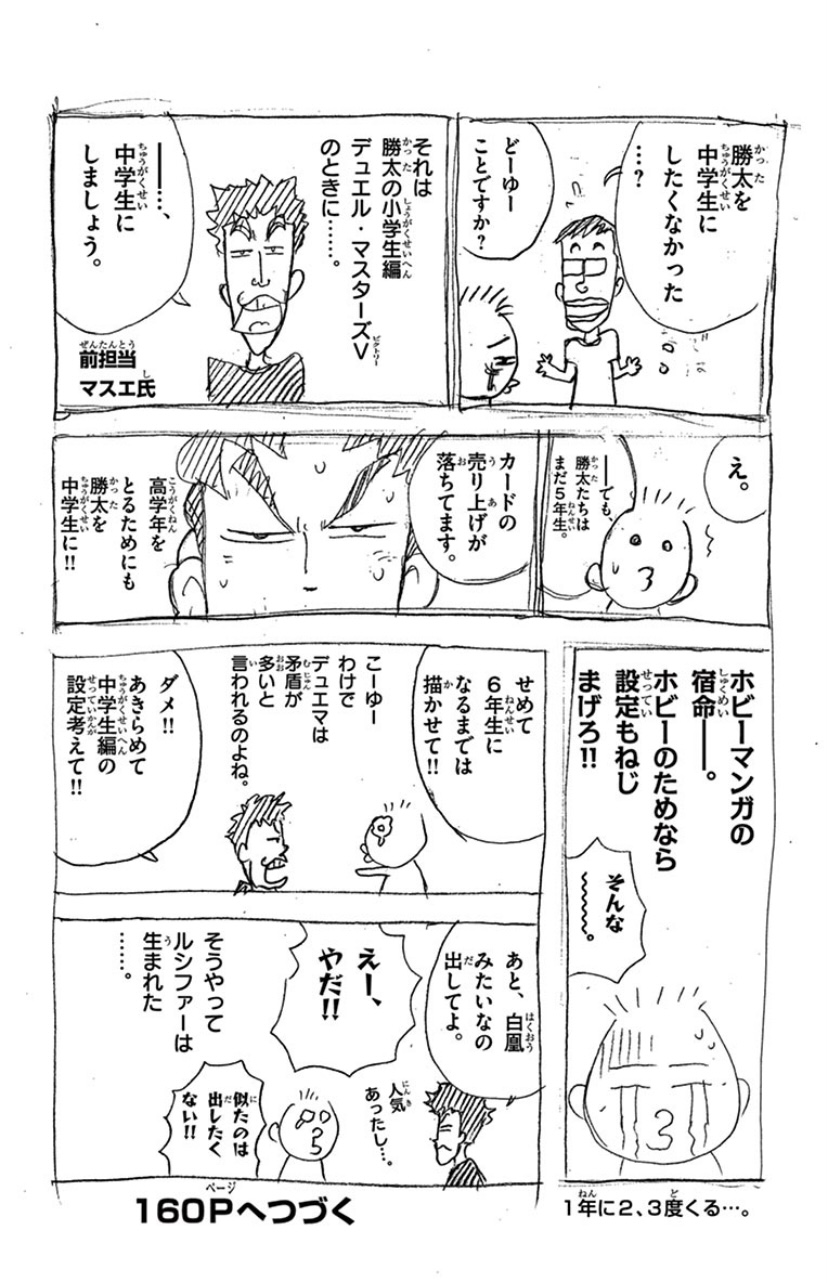 勝太を
中学生に
したくなかった
…?
どーゆー
ことですか?
それは
勝太の小学生編
デュエル・マスターズV
のときに……。
――…、
中学生に
しましょう。
前担当
マスエ氏
え。
――でも、
勝太たちは
まだ5年生。
カードの
売り上げが
落ちてます。
高学年を
とるためにも
勝太を
中学生に!!
ホビーマンガの
宿命――。
ホビーのためなら
設定もねじ
まげろ!!
そんな
〜〜〜。
1年に2、3度くる…。
せめて
6年生に
なるまでは
描かせて!!
こーゆー
わけで
デュエマは
矛盾が
多いと
言われるのよね。
ダメ!!
あきらめて
中学生編の
設定考えて!!
あと、白凰
みたいなの
出してよ。
人気
あったし…。
えー、
やだ!!
似たのは
出したく
ない!!
そうやって
ルシファーは
生まれた
……。
160Pへつづく